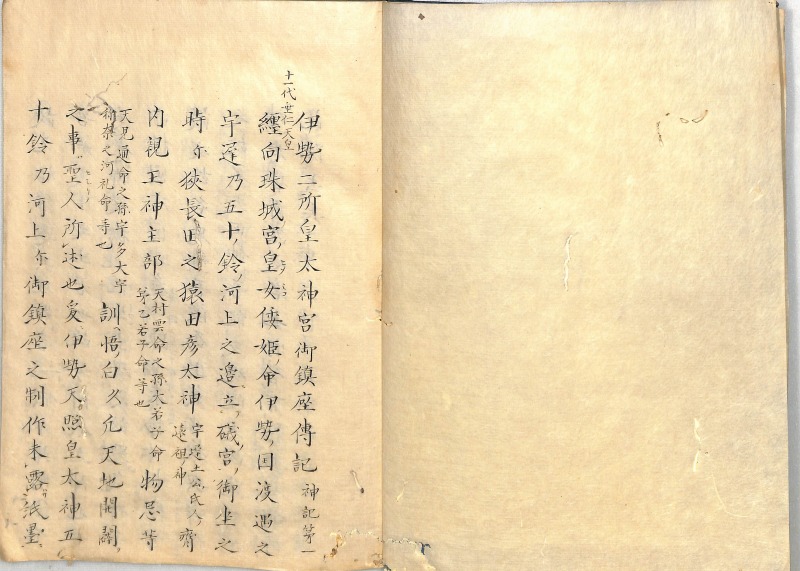 伊勢二所皇太神宮御鎮座傳記 神記第一
十一代垂仁天皇
纏向珠城宮皇女倭姫命伊勢国渡遇之
宇遅乃五十鈴河上之邊立礒宮御坐之
時尓狭長田之猿田彦太神 宇遅土公氏人遠祖神 齊
内視王神主部 天村雲命之孫大若子命弟乙若子命等也 物忌等
天見通命之孫宇多大宇祢奈之河礼命等也 訓悟白久凡天地開闢
之事聖人所述也爰伊勢天照皇太神五
十鈴乃河上尓御鎮座之制作未露紙墨